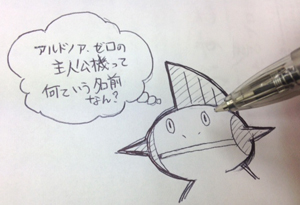 アルドノア.ゼロの
主人公機って
何ていう名前
なん?